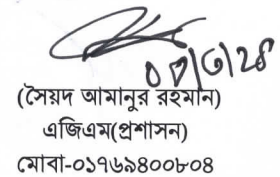 (সৈয়দ আমানুর রহমান)
এজিএম(প্রশাসন)
মোবা-০১৭৬৯৪০০৮০৪